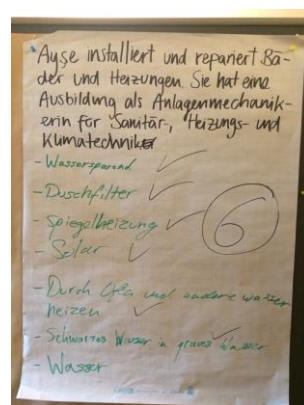 Ayşe installiert und repariert Bä-
der und Heizungen. Sie hat eine
Ausbildung als Anlagenmechanik-
erin für Sanitär-, Heizungs- und
Klimatechnik
- Wassersparend
- Duschfilter
- Spiegelheizung
- Solar
6
- Durch Ofen und andere wasser
heizen
- Schwarzes Wasser in graues Wasser
- Wasser